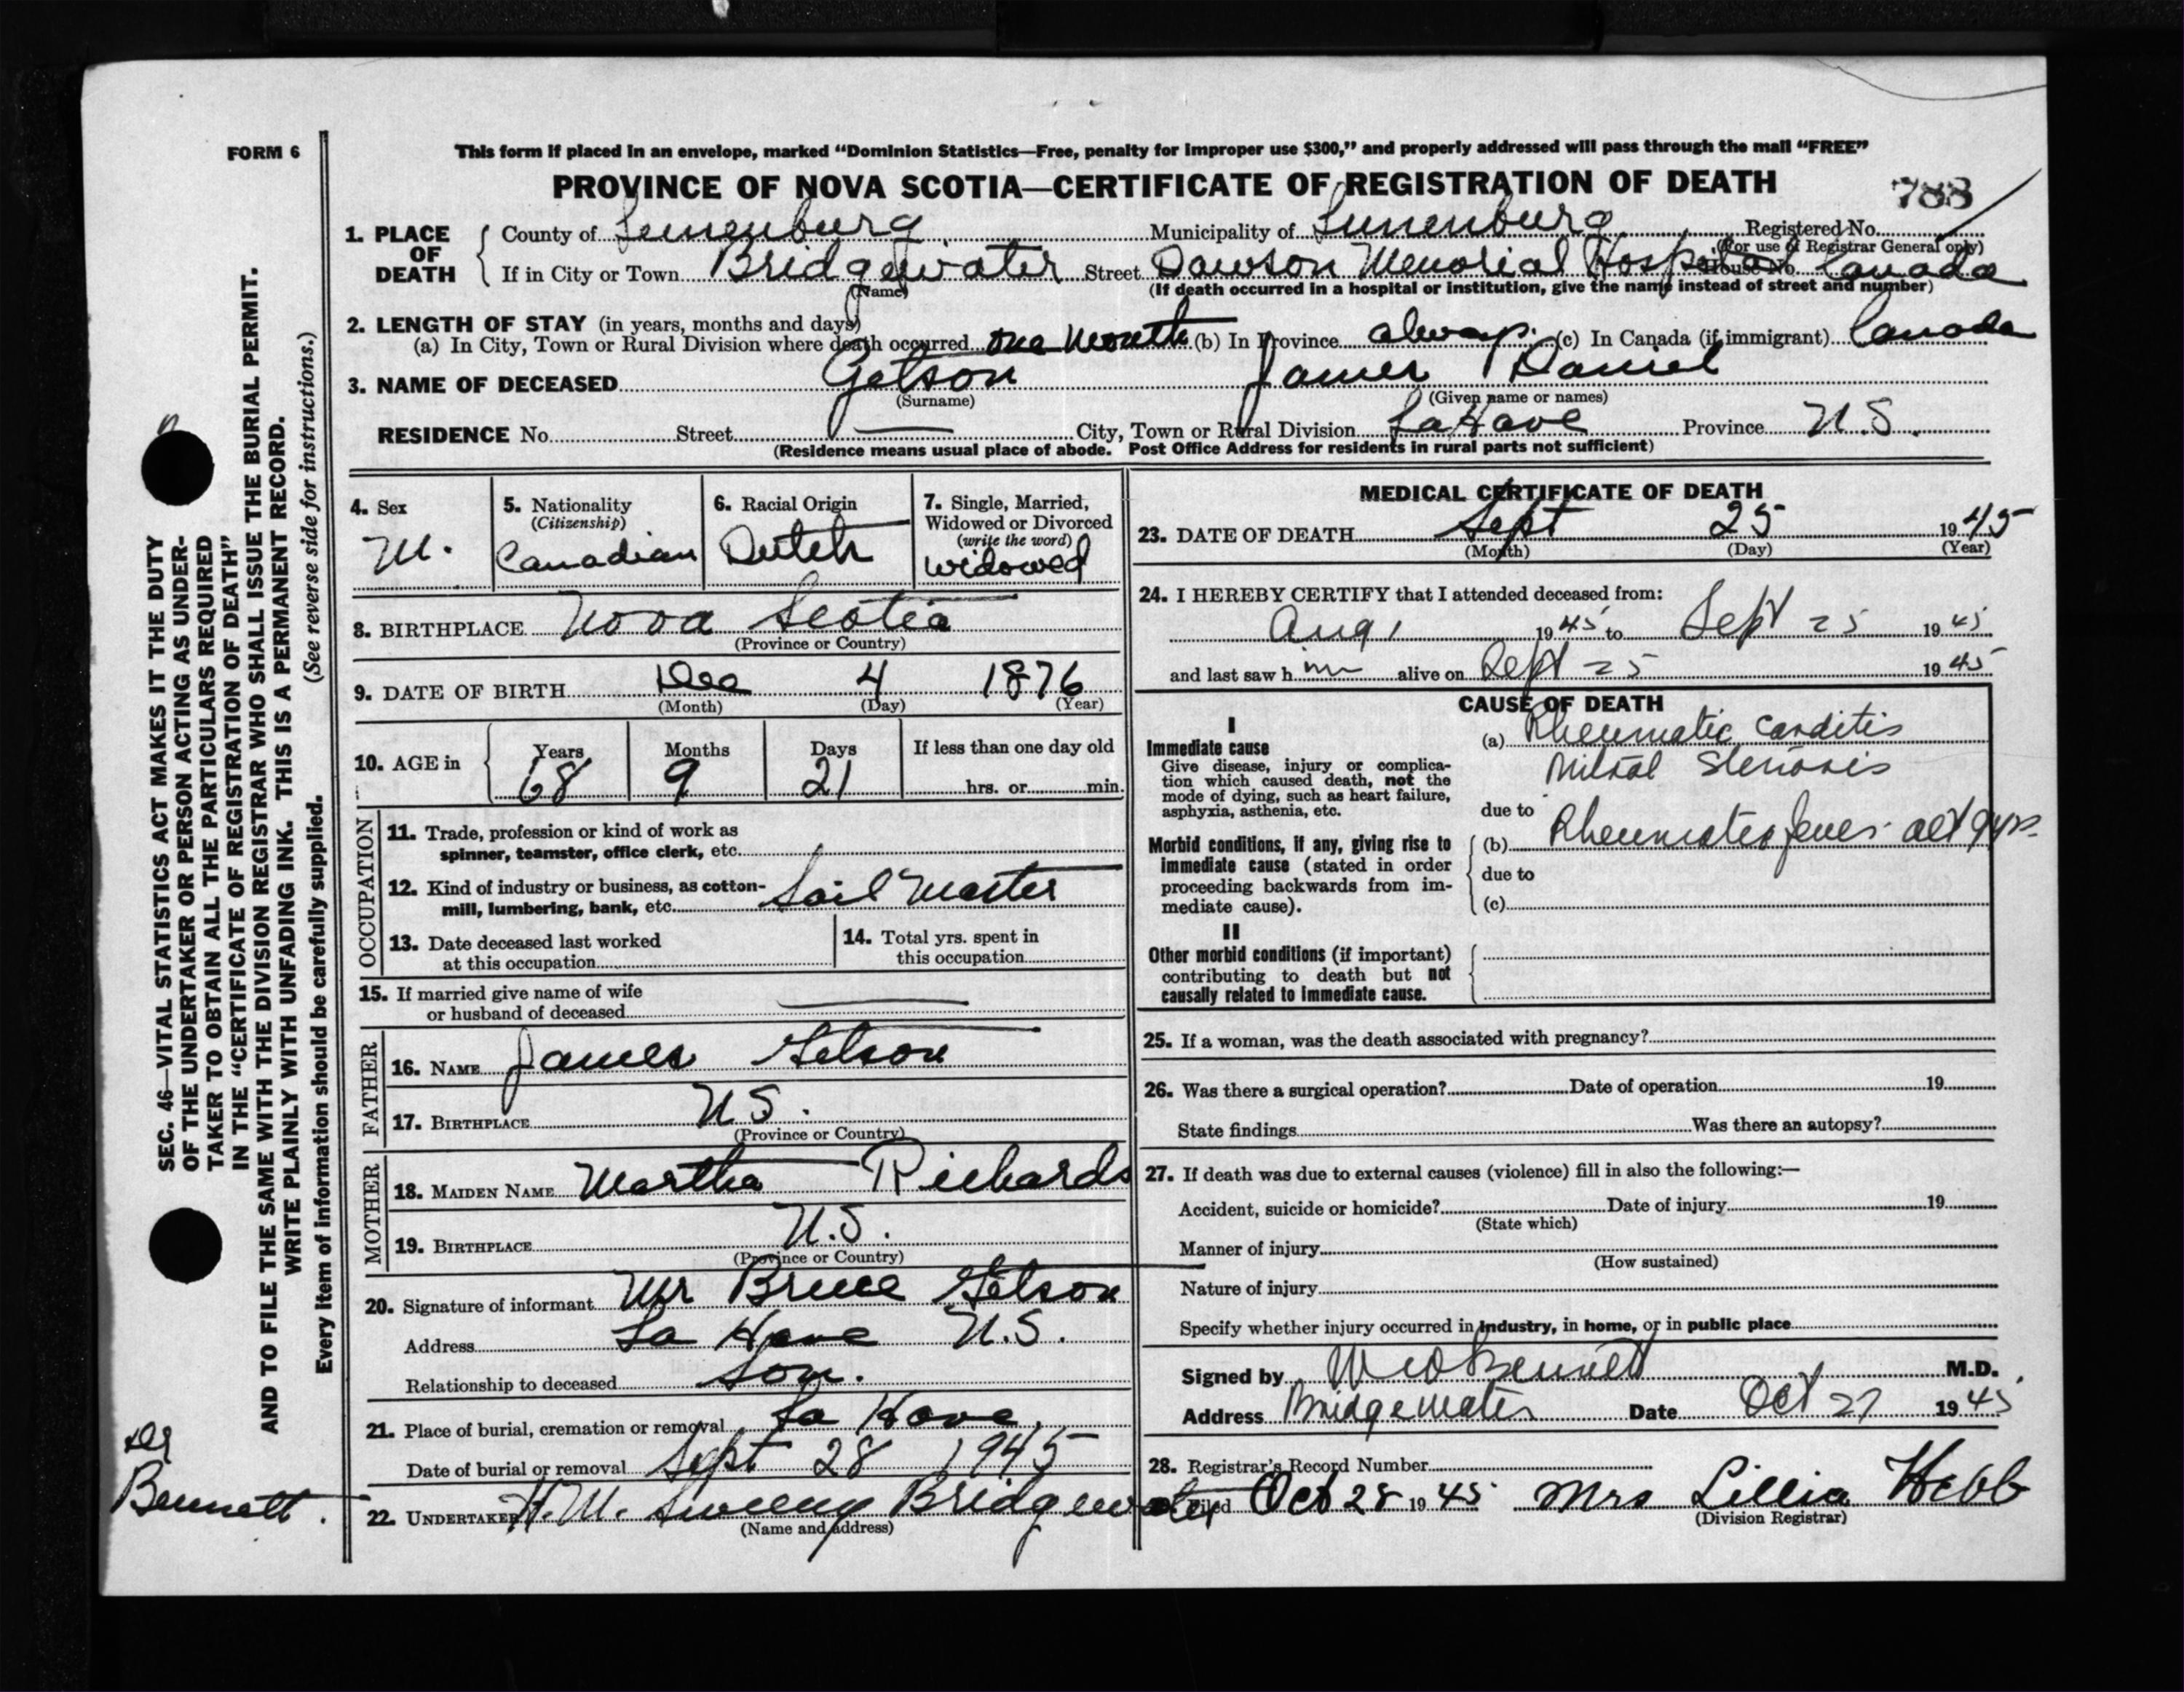 FORM 6
This form if placed in an envelope, marked “Dominion Statistics—Free, penalty for improper use $300,” and properly addressed will pass through the mail “FREE”
PROVINCE OF NOVA SCOTIA—CERTIFICATE OF REGISTRATION OF DEATH
788
1. PLACE OF DEATH
County of Lunenburg Municipality of Lunenburg Registered No.
(For use of Registrar General only)
If in City or Town Bridgewater Street Dawson Memorial Hospital House No. Canada
(Name) (If death occurred in a hospital or institution, give the name instead of street and number)
2. LENGTH OF STAY (in years, months and days)
(a) In City, Town or Rural Division where death occurred one month (b) In Province always. (c) In Canada (if immigrant) Canada
3. NAME OF DECEASED Getson James Daniel
(Surname) (Given name or names)
RESIDENCE No. Street — City, Town or Rural Division LaHave Province N.S.
(Residence means usual place of abode. Post Office Address for residents in rural parts not sufficient)
4. Sex
M.
5. Nationality
(Citizenship)
Canadian
6. Racial Origin
Dutch
7. Single, Married,
Widowed or Divorced
(write the word)
widowed
8. BIRTHPLACE Nova Scotia
(Province or Country)
9. DATE OF BIRTH Dec 4 1876
(Month) (Day) (Year)
10. AGE in Years Months Days If less than one day old
68 9 21 hrs. or min.
OCCUPATION
11. Trade, profession or kind of work as
spinner, teamster, office clerk, etc.
12. Kind of industry or business, as cotton-
mill, lumbering, bank, etc. Sail Master
13. Date deceased last worked
at this occupation
14. Total yrs. spent in
this occupation
15. If married give name of wife
or husband of deceased
FATHER
16. NAME James Getson
17. BIRTHPLACE N.S.
(Province or Country)
MOTHER
18. MAIDEN NAME Martha Richards
19. BIRTHPLACE N.S.
(Province or Country)
20. Signature of informant Mr Bruce Getson
Address La Have N.S.
Relationship to deceased Son.
21. Place of burial, cremation or removal La Have.
Date of burial or removal Sept 28 1945
22. UNDERTAKER H.M. Sweeny Bridgewater
(Name and address)
MEDICAL CERTIFICATE OF DEATH
23. DATE OF DEATH Sept 25 1945
(Month) (Day) (Year)
24. I HEREBY CERTIFY that I attended deceased from:
Aug 1 1945 to Sept 25 1945
and last saw him alive on Sept 25 1945
CAUSE OF DEATH
I
Immediate cause
Give disease, injury or complica-
tion which caused death, not the
mode of dying, such as heart failure,
asphyxia, asthenia, etc.
(a) Rheumatic Carditis
Mitral Stenosis
due to
Morbid conditions, if any, giving rise to
immediate cause (stated in order
proceeding backwards from im-
mediate cause).
(b) Rheumatic fever aet 9 yrs.
due to
(c)
II
Other morbid conditions (if important)
contributing to death but not
causally related to immediate cause.
25. If a woman, was the death associated with pregnancy?
26. Was there a surgical operation? Date of operation 19
State findings Was there an autopsy?
27. If death was due to external causes (violence) fill in also the following:—
Accident, suicide or homicide? Date of injury 19
(State which)
Manner of injury
(How sustained)
Nature of injury
Specify whether injury occurred in industry, in home, or in public place
Signed by Bennett M.D.
Address Bridgewater Date Oct 27 1945
28. Registrar's Record Number
Filed Oct 28 1945 Mrs Lillia Hebb
(Division Registrar)
SEC. 46—VITAL STATISTICS ACT MAKES IT THE DUTY
OF THE UNDERTAKER OR PERSON ACTING AS UNDER-
TAKER TO OBTAIN ALL THE PARTICULARS REQUIRED
IN THE “CERTIFICATE OF REGISTRATION OF DEATH”
AND TO FILE THE SAME WITH THE DIVISION REGISTRAR WHO SHALL ISSUE THE BURIAL PERMIT.
WRITE PLAINLY WITH UNFADING INK. THIS IS A PERMANENT RECORD.
Every item of information should be carefully supplied. (See reverse side for instructions.)
Dr
Bennett.